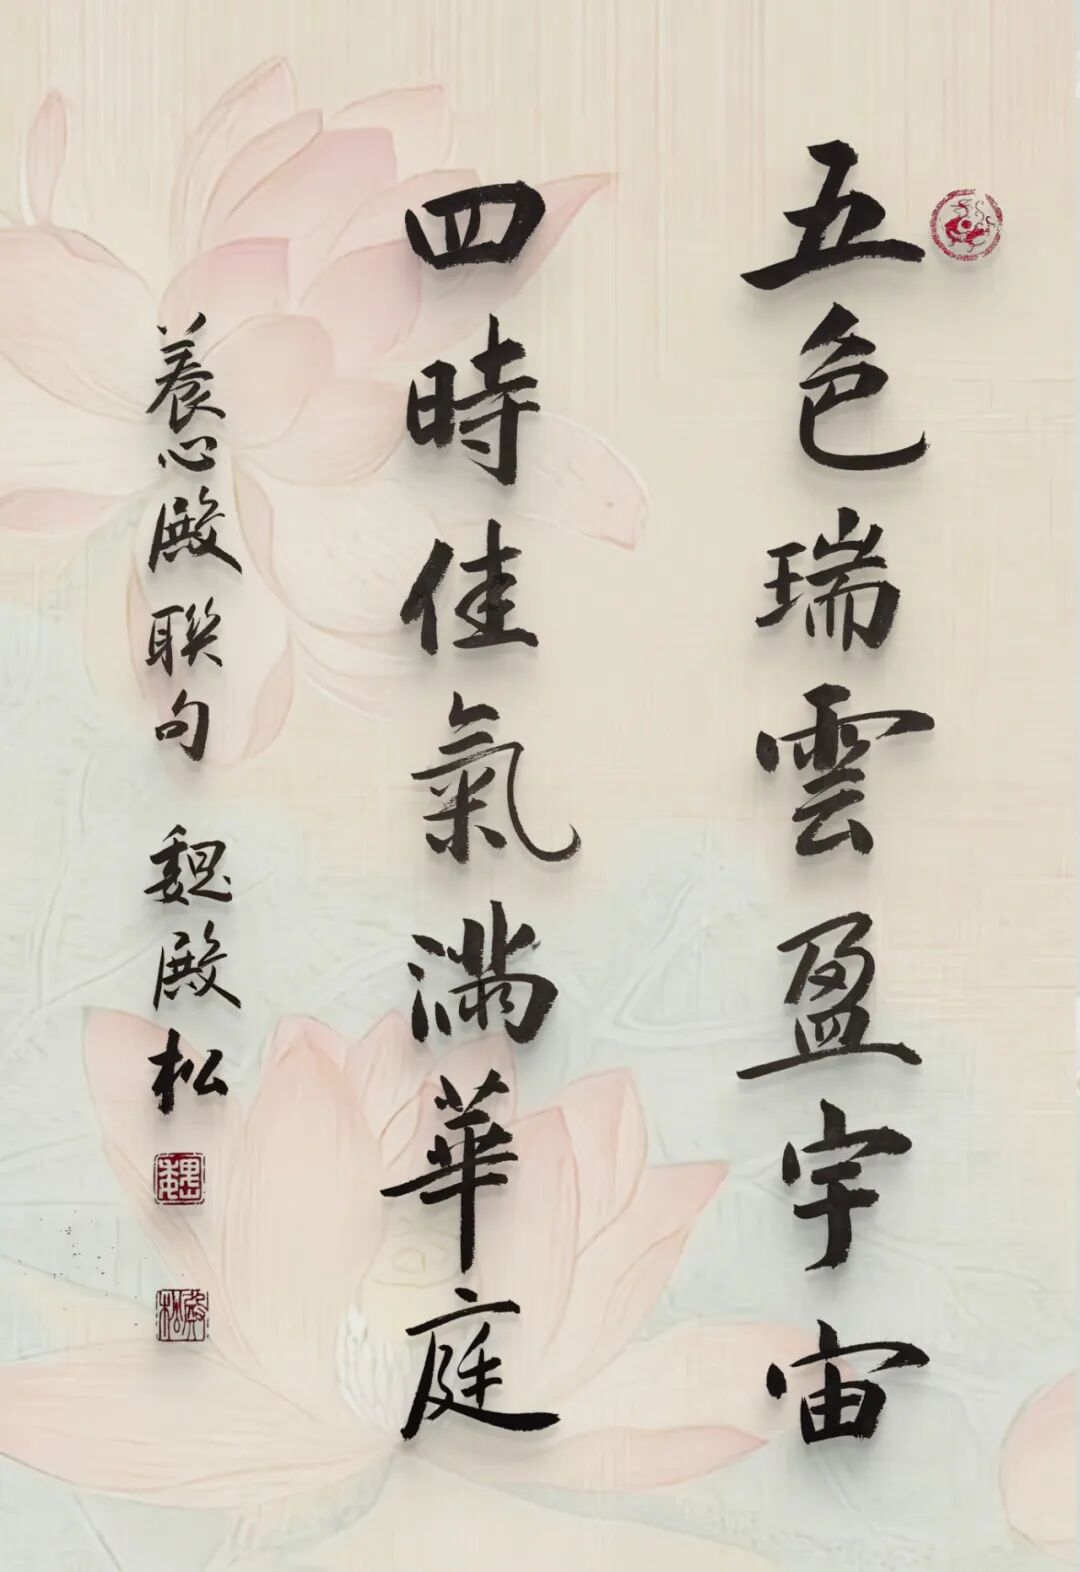 五色瑞雲盈宇宙
四時佳氣滿華庭
養心殿聯句 魏殿松
魏
殿松